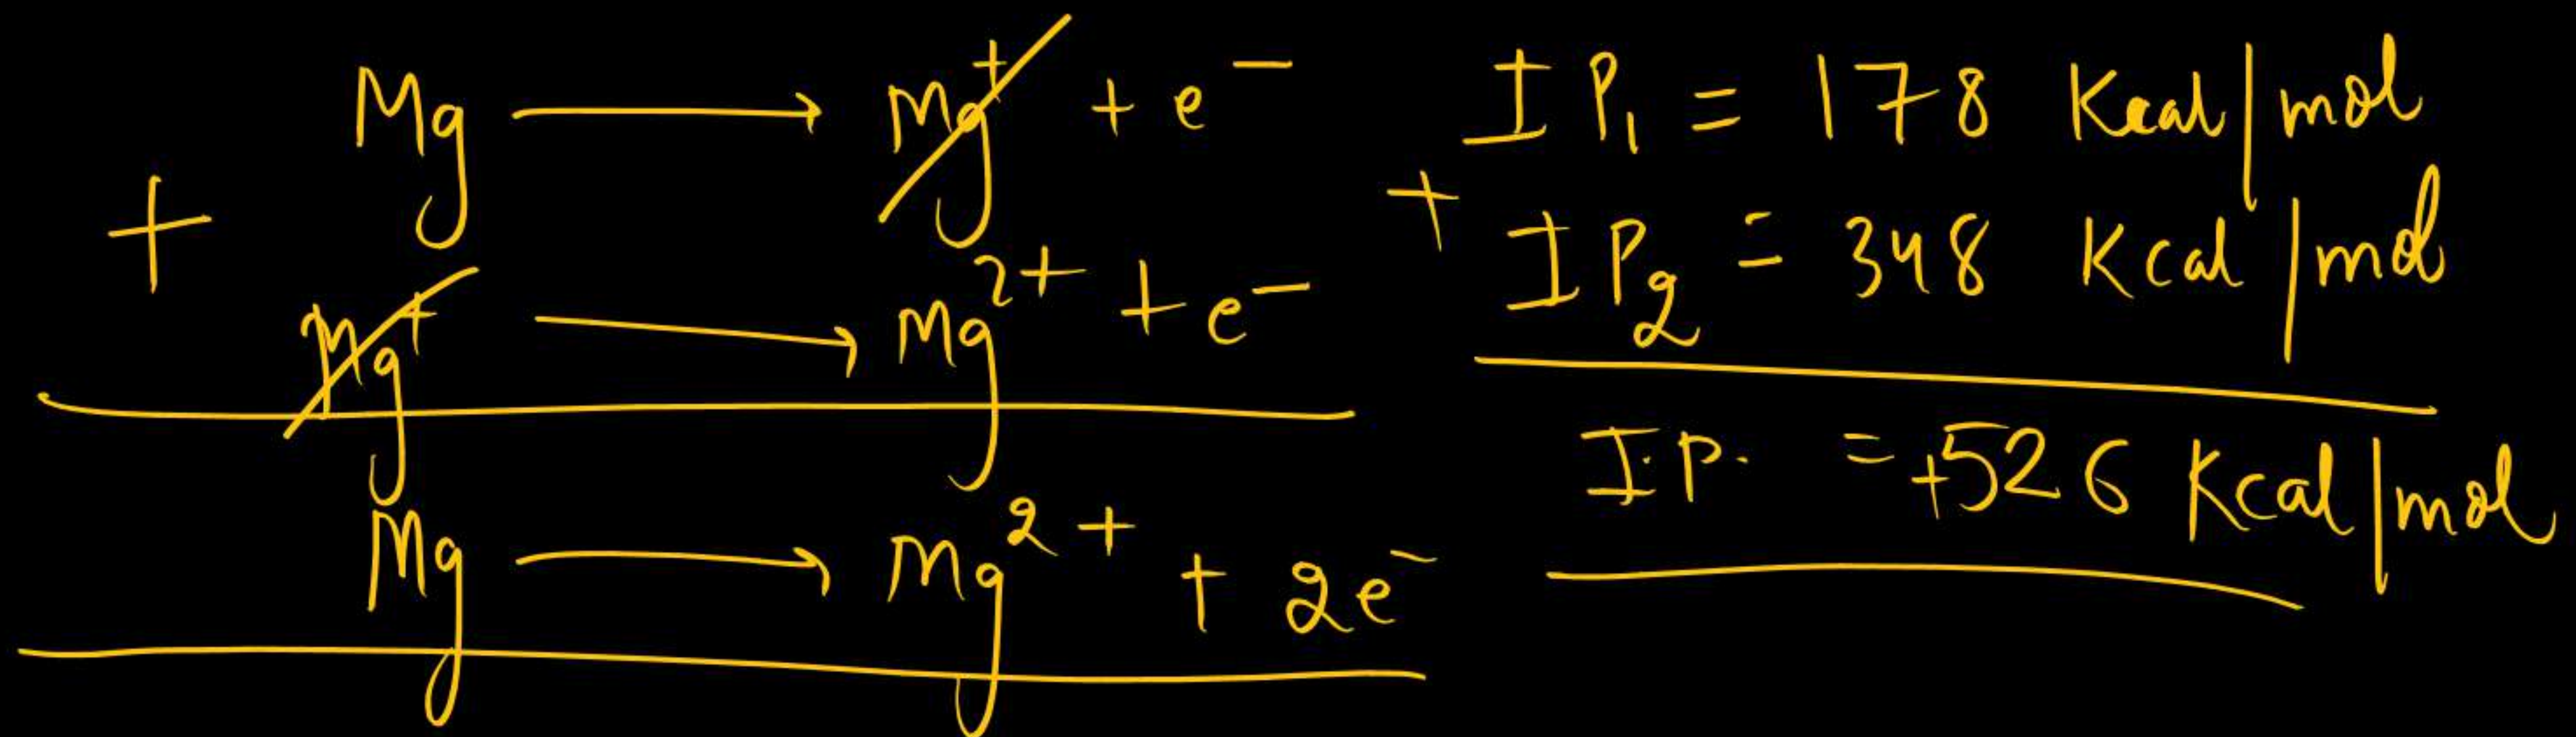 Mg ⟶ Mg⁺ + e⁻ IP₁ = 178 Kcal/mol
+ Mg⁺ ⟶ Mg²⁺ + e⁻ + IP₂ = 348 Kcal/mol
Mg ⟶ Mg²⁺ + 2e⁻ I.P. = +526 Kcal/mol